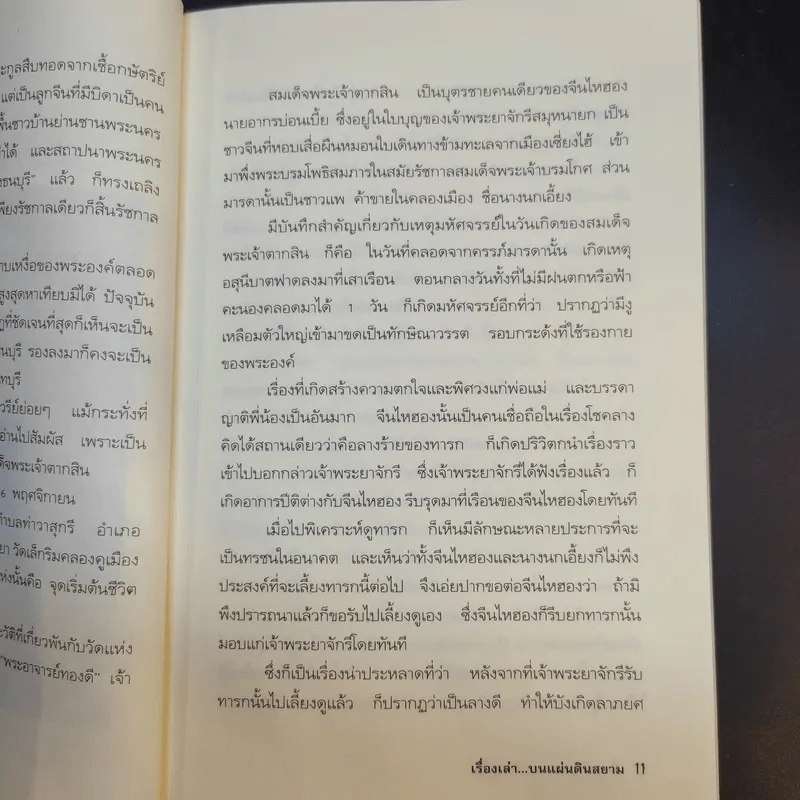 ะกูลสืบทอดจากเชื้อกษัตริย์
แต่เป็นลูกจีนที่มีบิดาเป็นคน
พื้นชาวบ้านย่านชานพระนคร
ทำได้ และสถาปนาพระนคร
งธนบุรี" แล้ว ก็ทรงเถลิง
พียงรัชกาลเดียวก็สิ้นรัชกาล
าบเหงื่อของพระองค์ตลอด
สูงสุดหาเทียบมิได้ ปัจจุบัน
ฏที่ชัดเจนที่สุดก็เห็นจะเป็น
นบุรี รองลงมาก็คงจะเป็น
ทบุรี
วรีย์ย่อยๆ แม้กระทั่งที่
อ่านไปสัมผัส เพราะเป็น
ด็จพระเจ้าตากสิน
๖ พฤศจิกายน
ตำบลท่าวาสุกรี อำเภอ
ยา วัดเล็กริมคลองคูเมือง
แห่งนั้นคือ จุดเริ่มต้นชีวิต
ะวัติที่เกี่ยวพันกับวัดแห่ง
"พระอาจารย์ทองดี" เจ้า
สมเด็จพระเจ้าตากสิน เป็นบุตรชายคนเดียวของจีนไหฮอง
นายอากรบ่อนเบี้ย ซึ่งอยู่ในใบบุญของเจ้าพระยาจักรีสมุหนายก เป็น
ชาวจีนที่หอบเสื่อผืนหมอนใบเดินทางข้ามทะเลจากเมืองเซี่ยงไฮ้ เข้า
มาพึ่งพระบรมโพธิสมภารในสมัยรัชกาลสมเด็จพระเจ้าบรมโกศ ส่วน
มารดานั้นเป็นชาวแพ ค้าขายในคลองเมือง ชื่อนางนกเอี้ยง
มีบันทึกสำคัญเกี่ยวกับเหตุมหัศจรรย์ในวันเกิดของสมเด็จ
พระเจ้าตากสิน ก็คือ ในวันที่คลอดจากครรภ์มารดานั้น เกิดเหตุ
อสุนีบาตฟาดลงมาที่เสาเรือน ตอนกลางวันทั้งที่ไม่มีฝนตกหรือฟ้า
คะนองคลอดมาได้ ๑ วัน ก็เกิดมหัศจรรย์อีกที่ว่า ปรากฏว่ามีงู
เหลือมตัวใหญ่เข้ามาขดเป็นทักษิณาวรรต รอบกระด้งที่ใช้รองกาย
ของพระองค์
เรื่องที่เกิดสร้างความตกใจและพิศวงแก่พ่อแม่ และบรรดา
ญาติพี่น้องเป็นอันมาก จีนไหฮองนั้นเป็นคนเชื่อถือในเรื่องโชคลาง
คิดได้สถานเดียวว่าคือลางร้ายของทารก ก็เกิดปริวิตกนำเรื่องราว
เข้าไปบอกกล่าวเจ้าพระยาจักรี ซึ่งเจ้าพระยาจักรีได้ฟังเรื่องแล้ว ก็
เกิดอาการปีติต่างกับจีนไหฮอง รีบรุดมาที่เรือนของจีนไหฮองโดยทันที
เมื่อไปพิเคราะห์ดูทารก ก็เห็นมีลักษณะหลายประการที่จะ
เป็นทรชนในอนาคต และเห็นว่าทั้งจีนไหฮองและนางนกเอี้ยงก็ไม่พึง
ประสงค์ที่จะเลี้ยงทารกนี้ต่อไป จึงเอ่ยปากขอต่อจีนไหฮองว่า ถ้ามิ
พึงปรารถนาแล้วก็ขอรับไปเลี้ยงดูเอง ซึ่งจีนไหฮองก็รีบยกทารกนั้น
มอบแก่เจ้าพระยาจักรีโดยทันที
ซึ่งก็เป็นเรื่องน่าประหลาดที่ว่า หลังจากที่เจ้าพระยาจักรีรับ
ทารกนั้นไปเลี้ยงดูแล้ว ก็ปรากฏว่าเป็นลางดี ทำให้บังเกิดลาภยศ
เรื่องเล่า...บนแผ่นดินสยาม 11